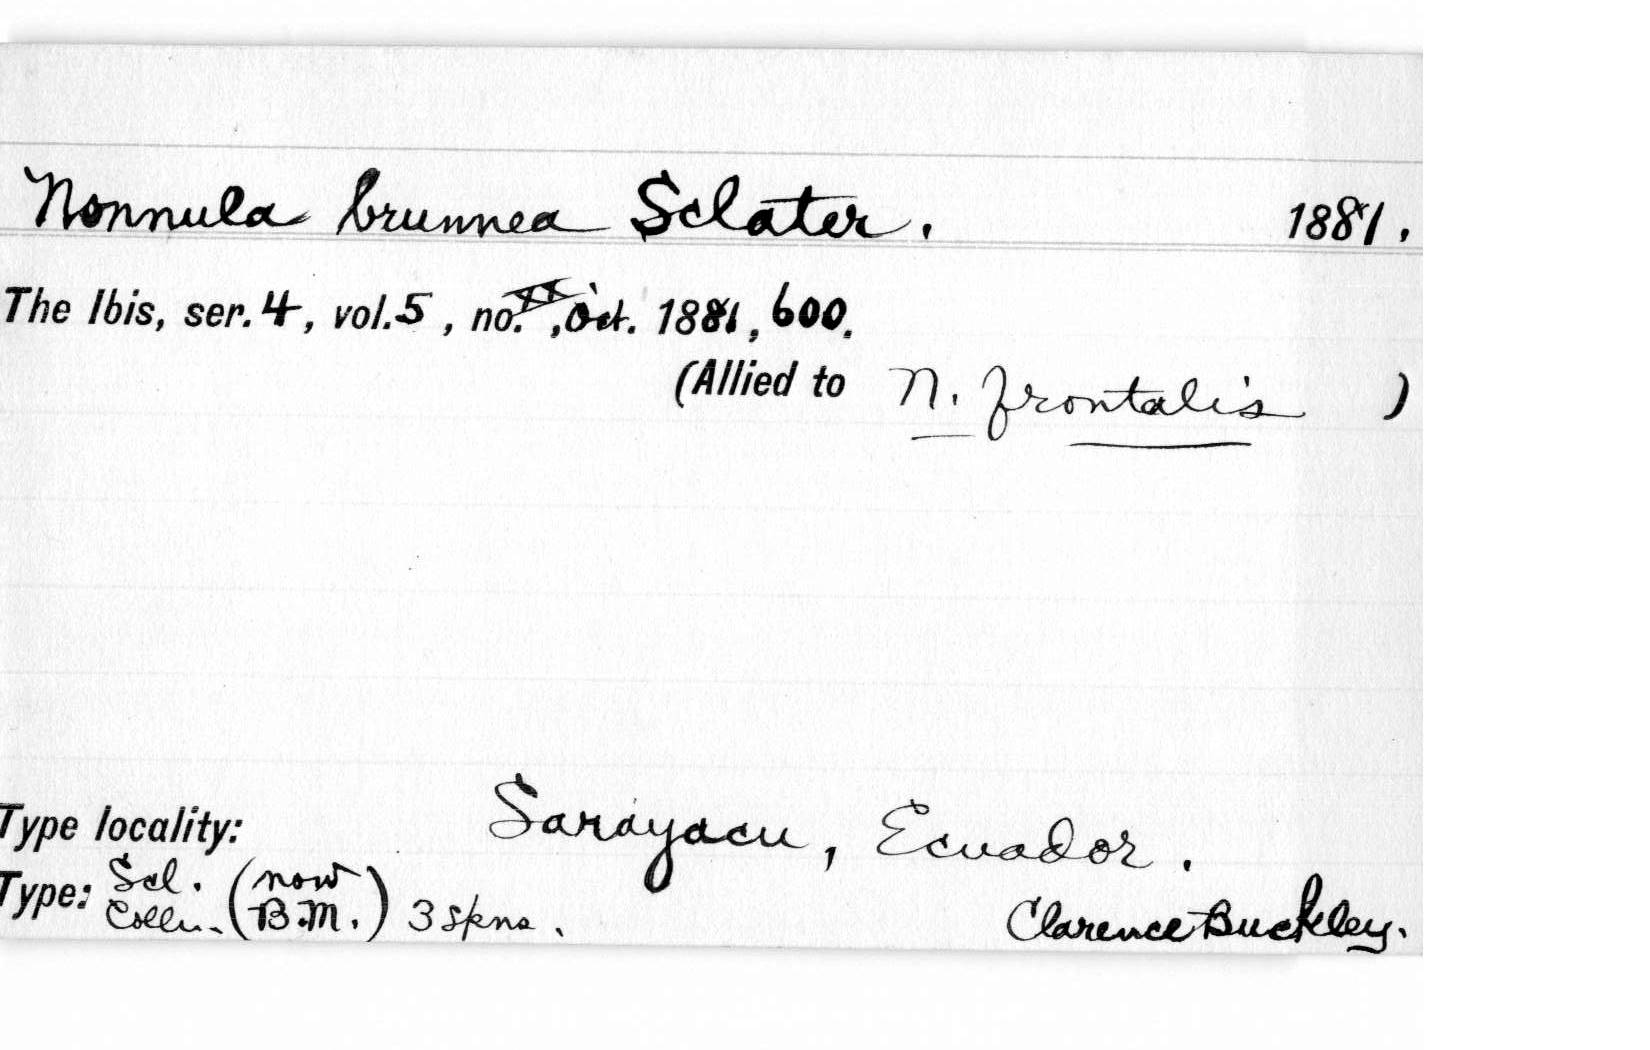 Nonnula brunnea Sclater. 1881.
The Ibis, ser. 4, vol. 5, no. XX, Oct. 1881, 600.
(Allied to N. frontalis )
Type locality: Sarayacu, Ecuador.
Type: Scl. Colln. (now B.M.) 3 skns. Clarence Buckley.